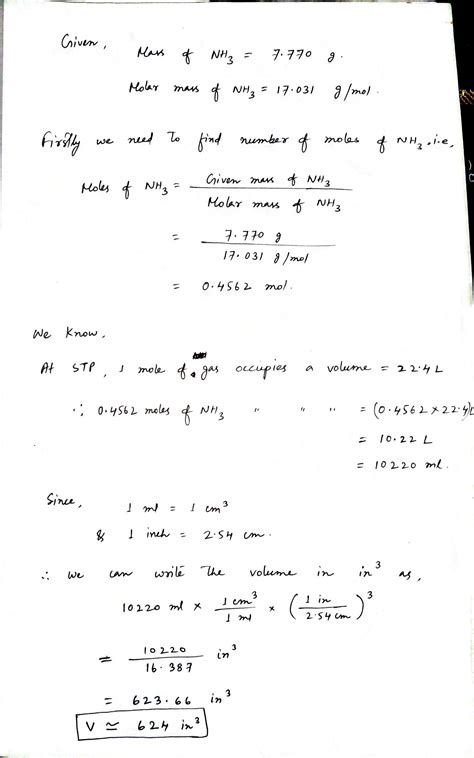 Given,
Mass of NH3 = 7.770 g.
Molar mass of NH3 = 17.031 g/mol.
Firstly we need to find number of moles of NH3.i.e,
Moles of NH3 = Given mass of NH3 / Molar mass of NH3
= 7.770 g / 17.031 g/mol
= 0.4562 mol.
We know,
At STP, 1 mole of gas occupies a volume = 22.4 L
∴ 0.4562 moles of NH3 " " " = (0.4562 × 22.4)L
= 10.22 L
= 10220 ml.
Since,
1 ml = 1 cm³
& 1 inch = 2.54 cm.
∴ we can write the volume in in³ as,
10220 ml × 1 cm³ / 1 ml × (1 in / 2.54 cm)³
= 10220 / 16.387 in³
= 623.66 in³
V ≃ 624 in³